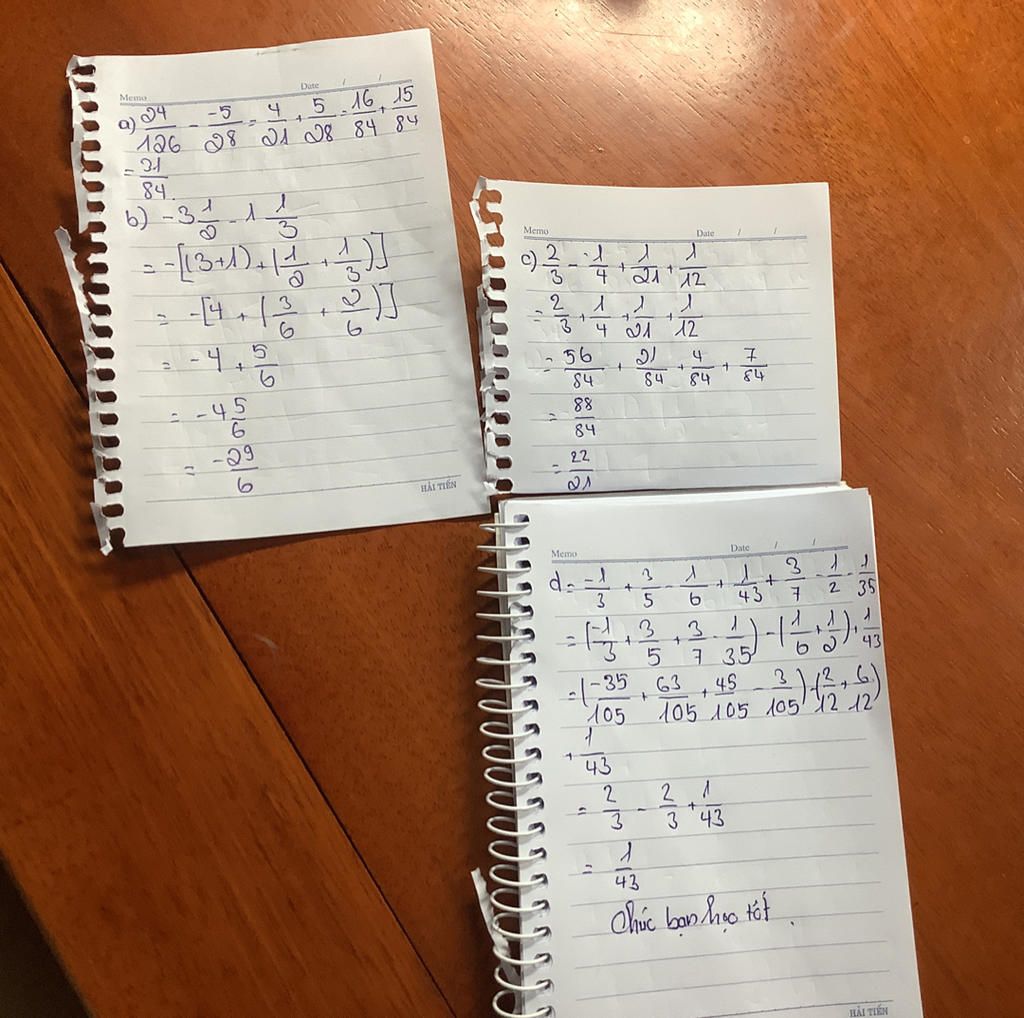 Memo Date / /
a) 24/126 - -5/28 = 4/21 + 5/28 = 16/84 + 15/84
= 31/84.
b) -3 1/2 - 1 1/3
= -[(3+1) + (1/2 + 1/3)]
= -[4 + (3/6 + 2/6)]
= -4 + 5/6
= -4 5/6
= -29/6
HẢI TIẾN
Memo Date / /
c) 2/3 - -1/4 + 1/21 + 1/12
= 2/3 + 1/4 + 1/21 + 1/12
= 56/84 + 21/84 + 4/84 + 7/84
= 88/84
= 22/21
Memo Date / /
d = -1/3 + 3/5 - 1/6 + 1/43 + 3/7 - 1/2 - 1/35
= (-1/3 + 3/5 + 3/7 - 1/35) - (1/6 + 1/2) + 1/43
= (-35/105 + 63/105 + 45/105 - 3/105) - (2/12 + 6/12)
+ 1/43
= 2/3 - 2/3 + 1/43
= 1/43
Chúc bạn học tốt.
HẢI TIẾN